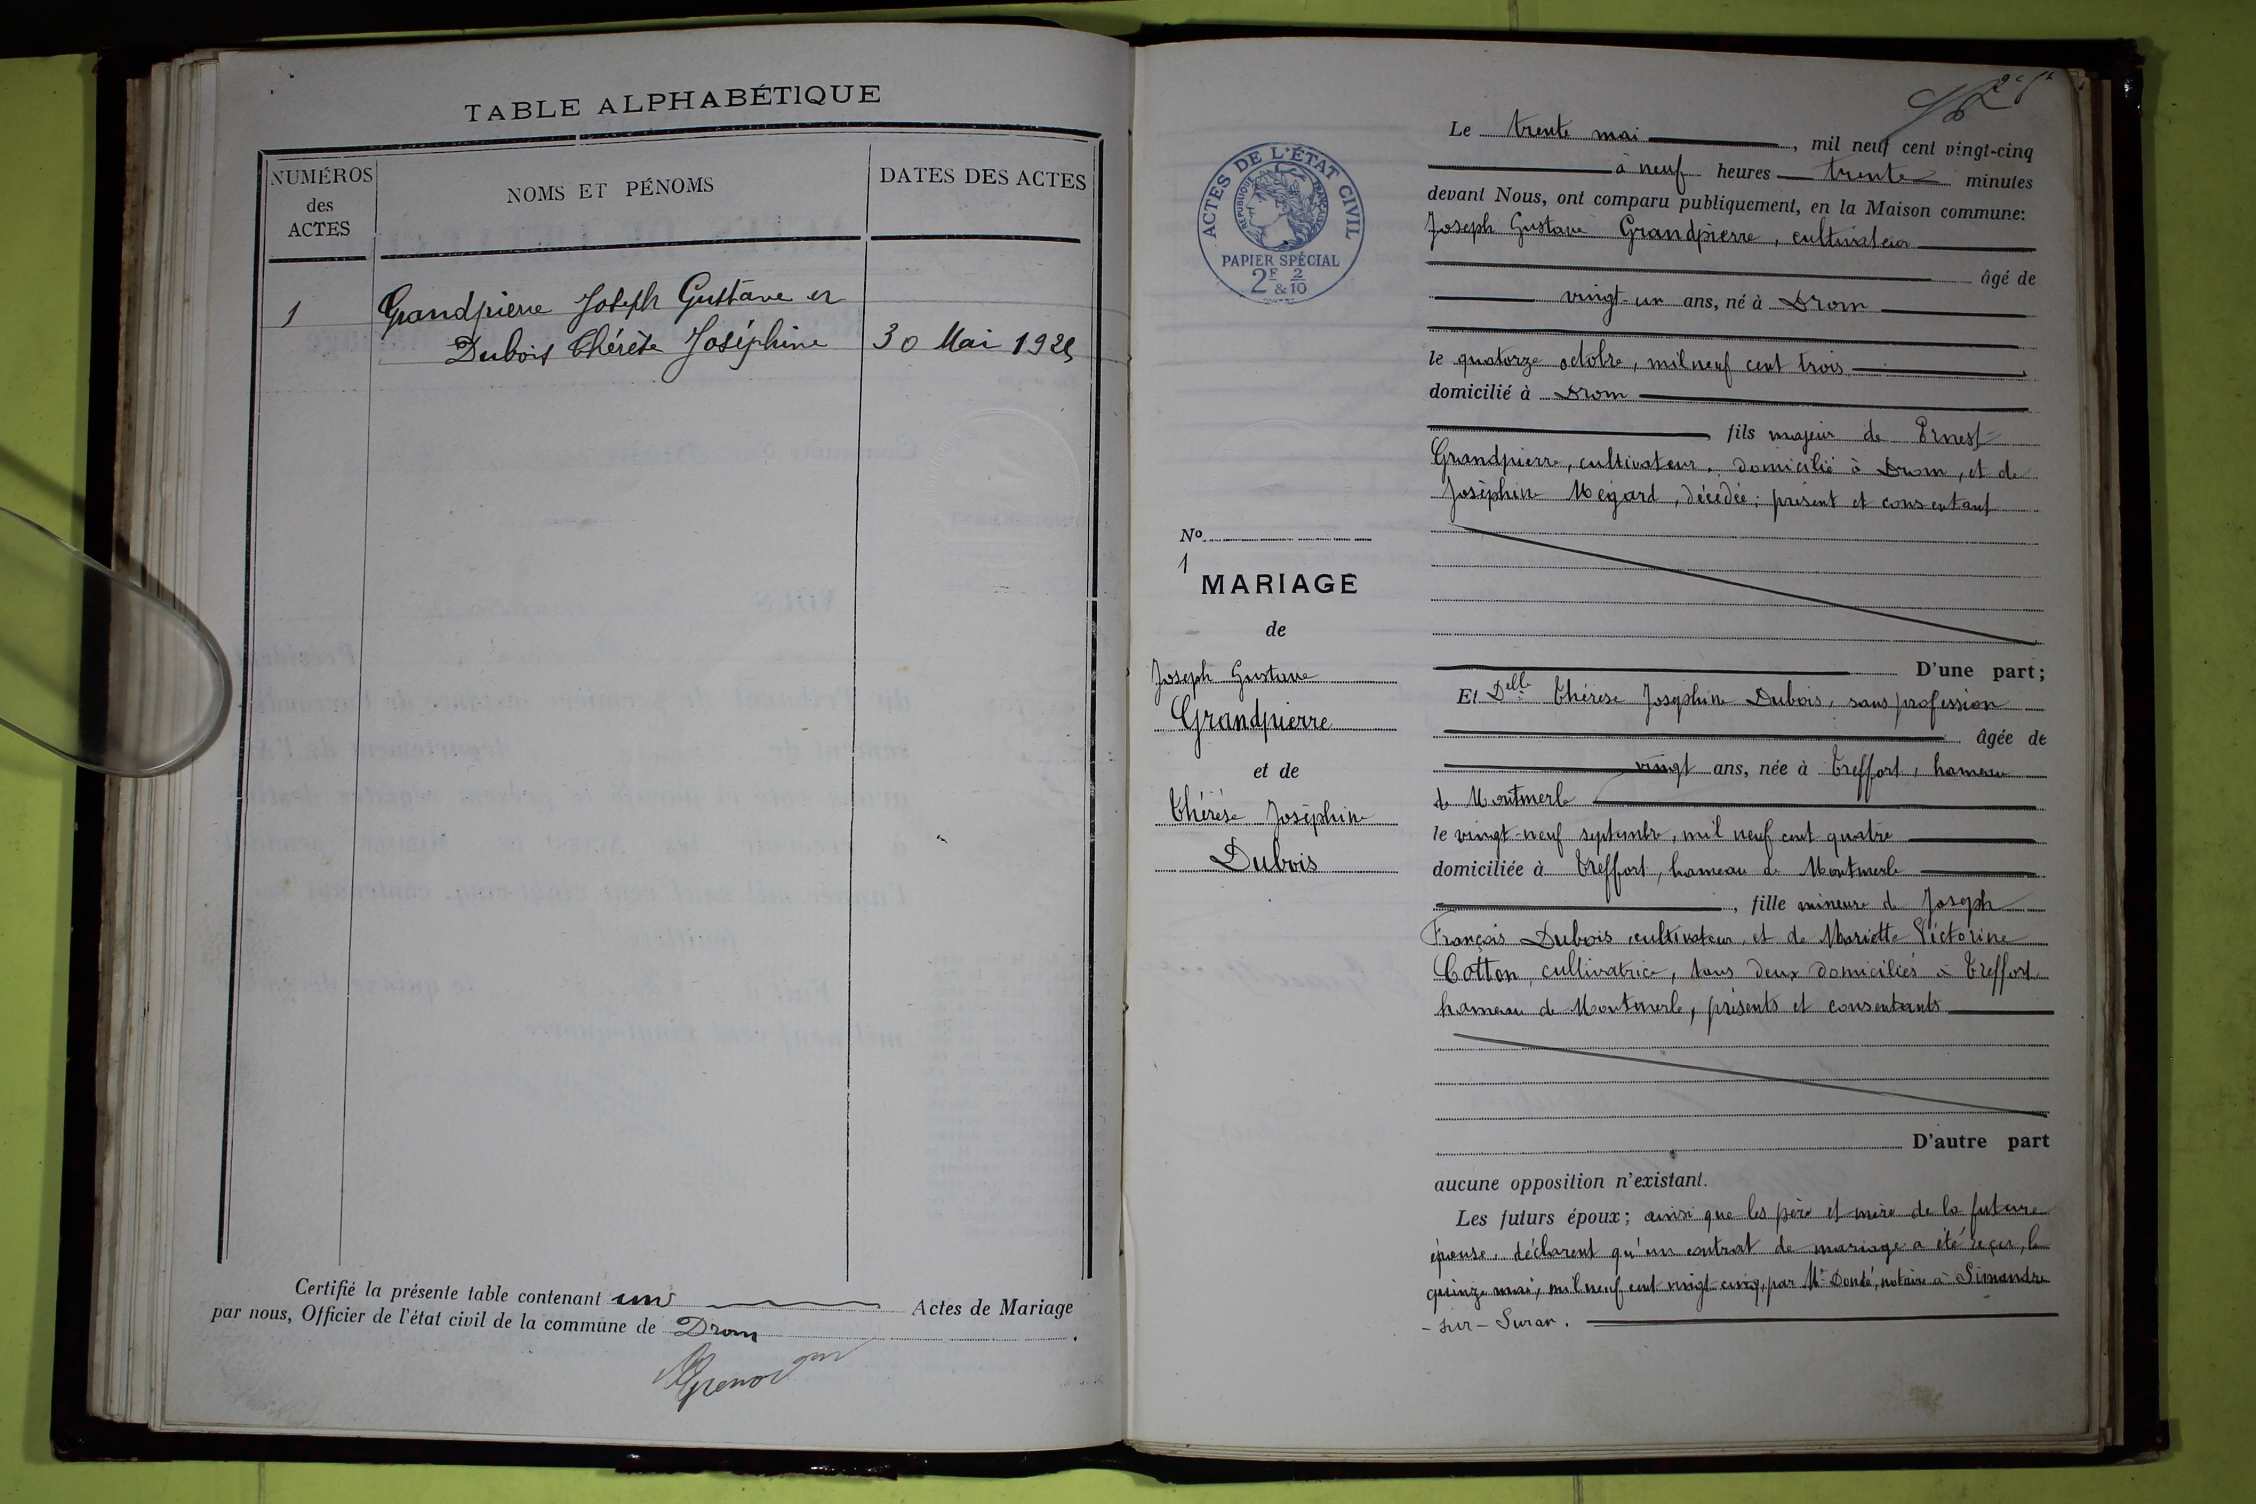 TABLE ALPHABÉTIQUE
NUMÉROS
des
ACTES
NOMS ET PÉNOMS
DATES DES ACTES
1
Grandpierre Joseph Gustave et
Dubois Thérèse Joséphine
30 Mai 1925
Certifié la présente table contenant un Actes de Mariage
par nous, Officier de l'état civil de la commune de Drom.
ACTES DE L'ÉTAT CIVIL
RÉPUBLIQUE FRANÇAISE
PAPIER SPÉCIAL
2F & 2/10
No
1
MARIAGE
de
Joseph Gustave
Grandpierre
et de
Thérèse Joséphine
Dubois
Le trente mai, mil neuf cent vingt-cinq
à neuf heures trente minutes
devant Nous, ont comparu publiquement, en la Maison commune:
Joseph Gustave Grandpierre, cultivateur
âgé de
vingt-un ans, né à Drom
le quatorze octobre, mil neuf cent trois
domicilié à Drom
fils majeur de Ernest
Grandpierre, cultivateur, domicilié à Drom, et de
Joséphine Mégard, décédée; présent et consentant
D'une part;
Et Delle Thérèse Joséphine Dubois, sans profession
âgée de
vingt ans, née à Treffort, hameau
de Montmerle
le vingt-neuf septembre, mil neuf cent quatre
domiciliée à Treffort, hameau de Montmerle
, fille mineure de Joseph
François Dubois cultivateur, et de Mariette Victorine
Cotton, cultivatrice, tous deux domiciliés à Treffort
hameau de Montmerle, présents et consentants
D'autre part
aucune opposition n'existant.
Les futurs époux; ainsi que les père et mère de la future
épouse, déclarent qu'un contrat de mariage a été reçu, le
quinze mai, mil neuf cent vingt-cinq, par Me Dondé, notaire à Simandre
-sur-Suran.